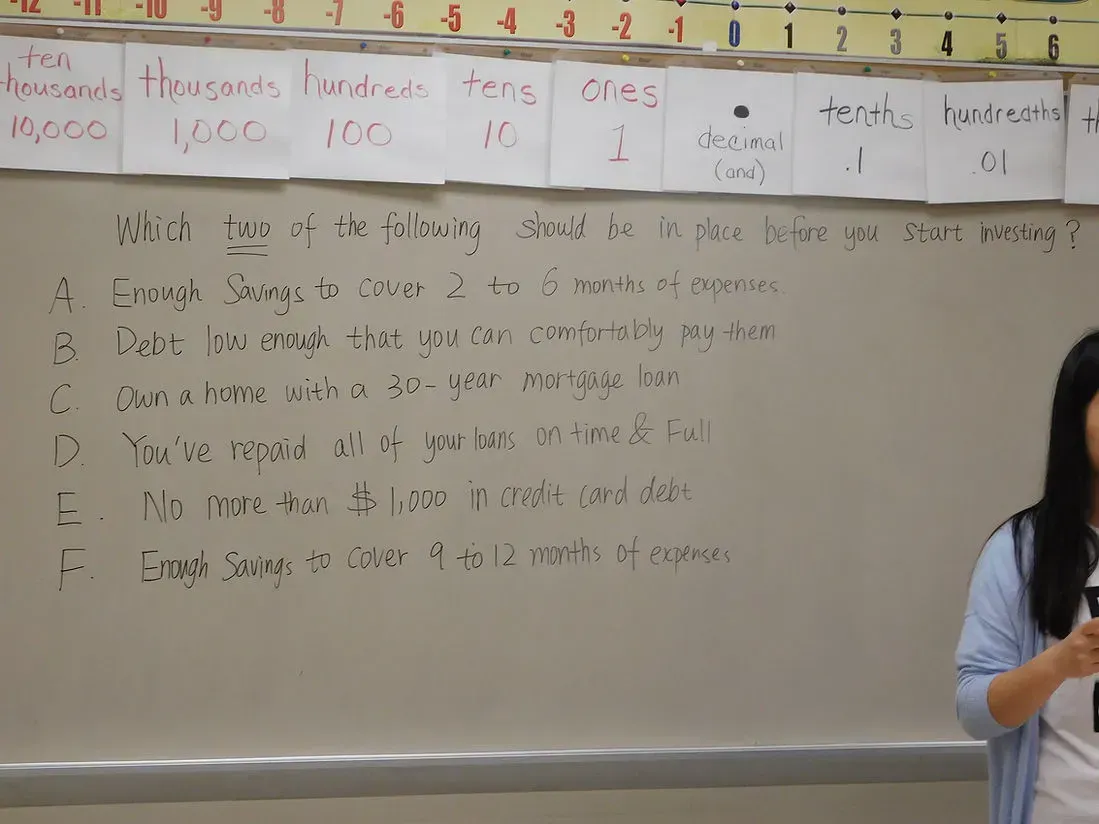 -12 -11 -10 -9 -8 -7 -6 -5 -4 -3 -2 -1 0 1 2 3 4 5 6
ten thousands
10,000
thousands
1,000
hundreds
100
tens
10
ones
1
decimal
(and)
tenths
.1
hundredths
.01
Which two of the following should be in place before you start investing?
A. Enough Savings to cover 2 to 6 months of expenses.
B. Debt low enough that you can comfortably pay them
C. Own a home with a 30-year mortgage loan
D. You've repaid all of your loans on time & Full
E. No more than $1,000 in credit card debt
F. Enough Savings to cover 9 to 12 months of expenses